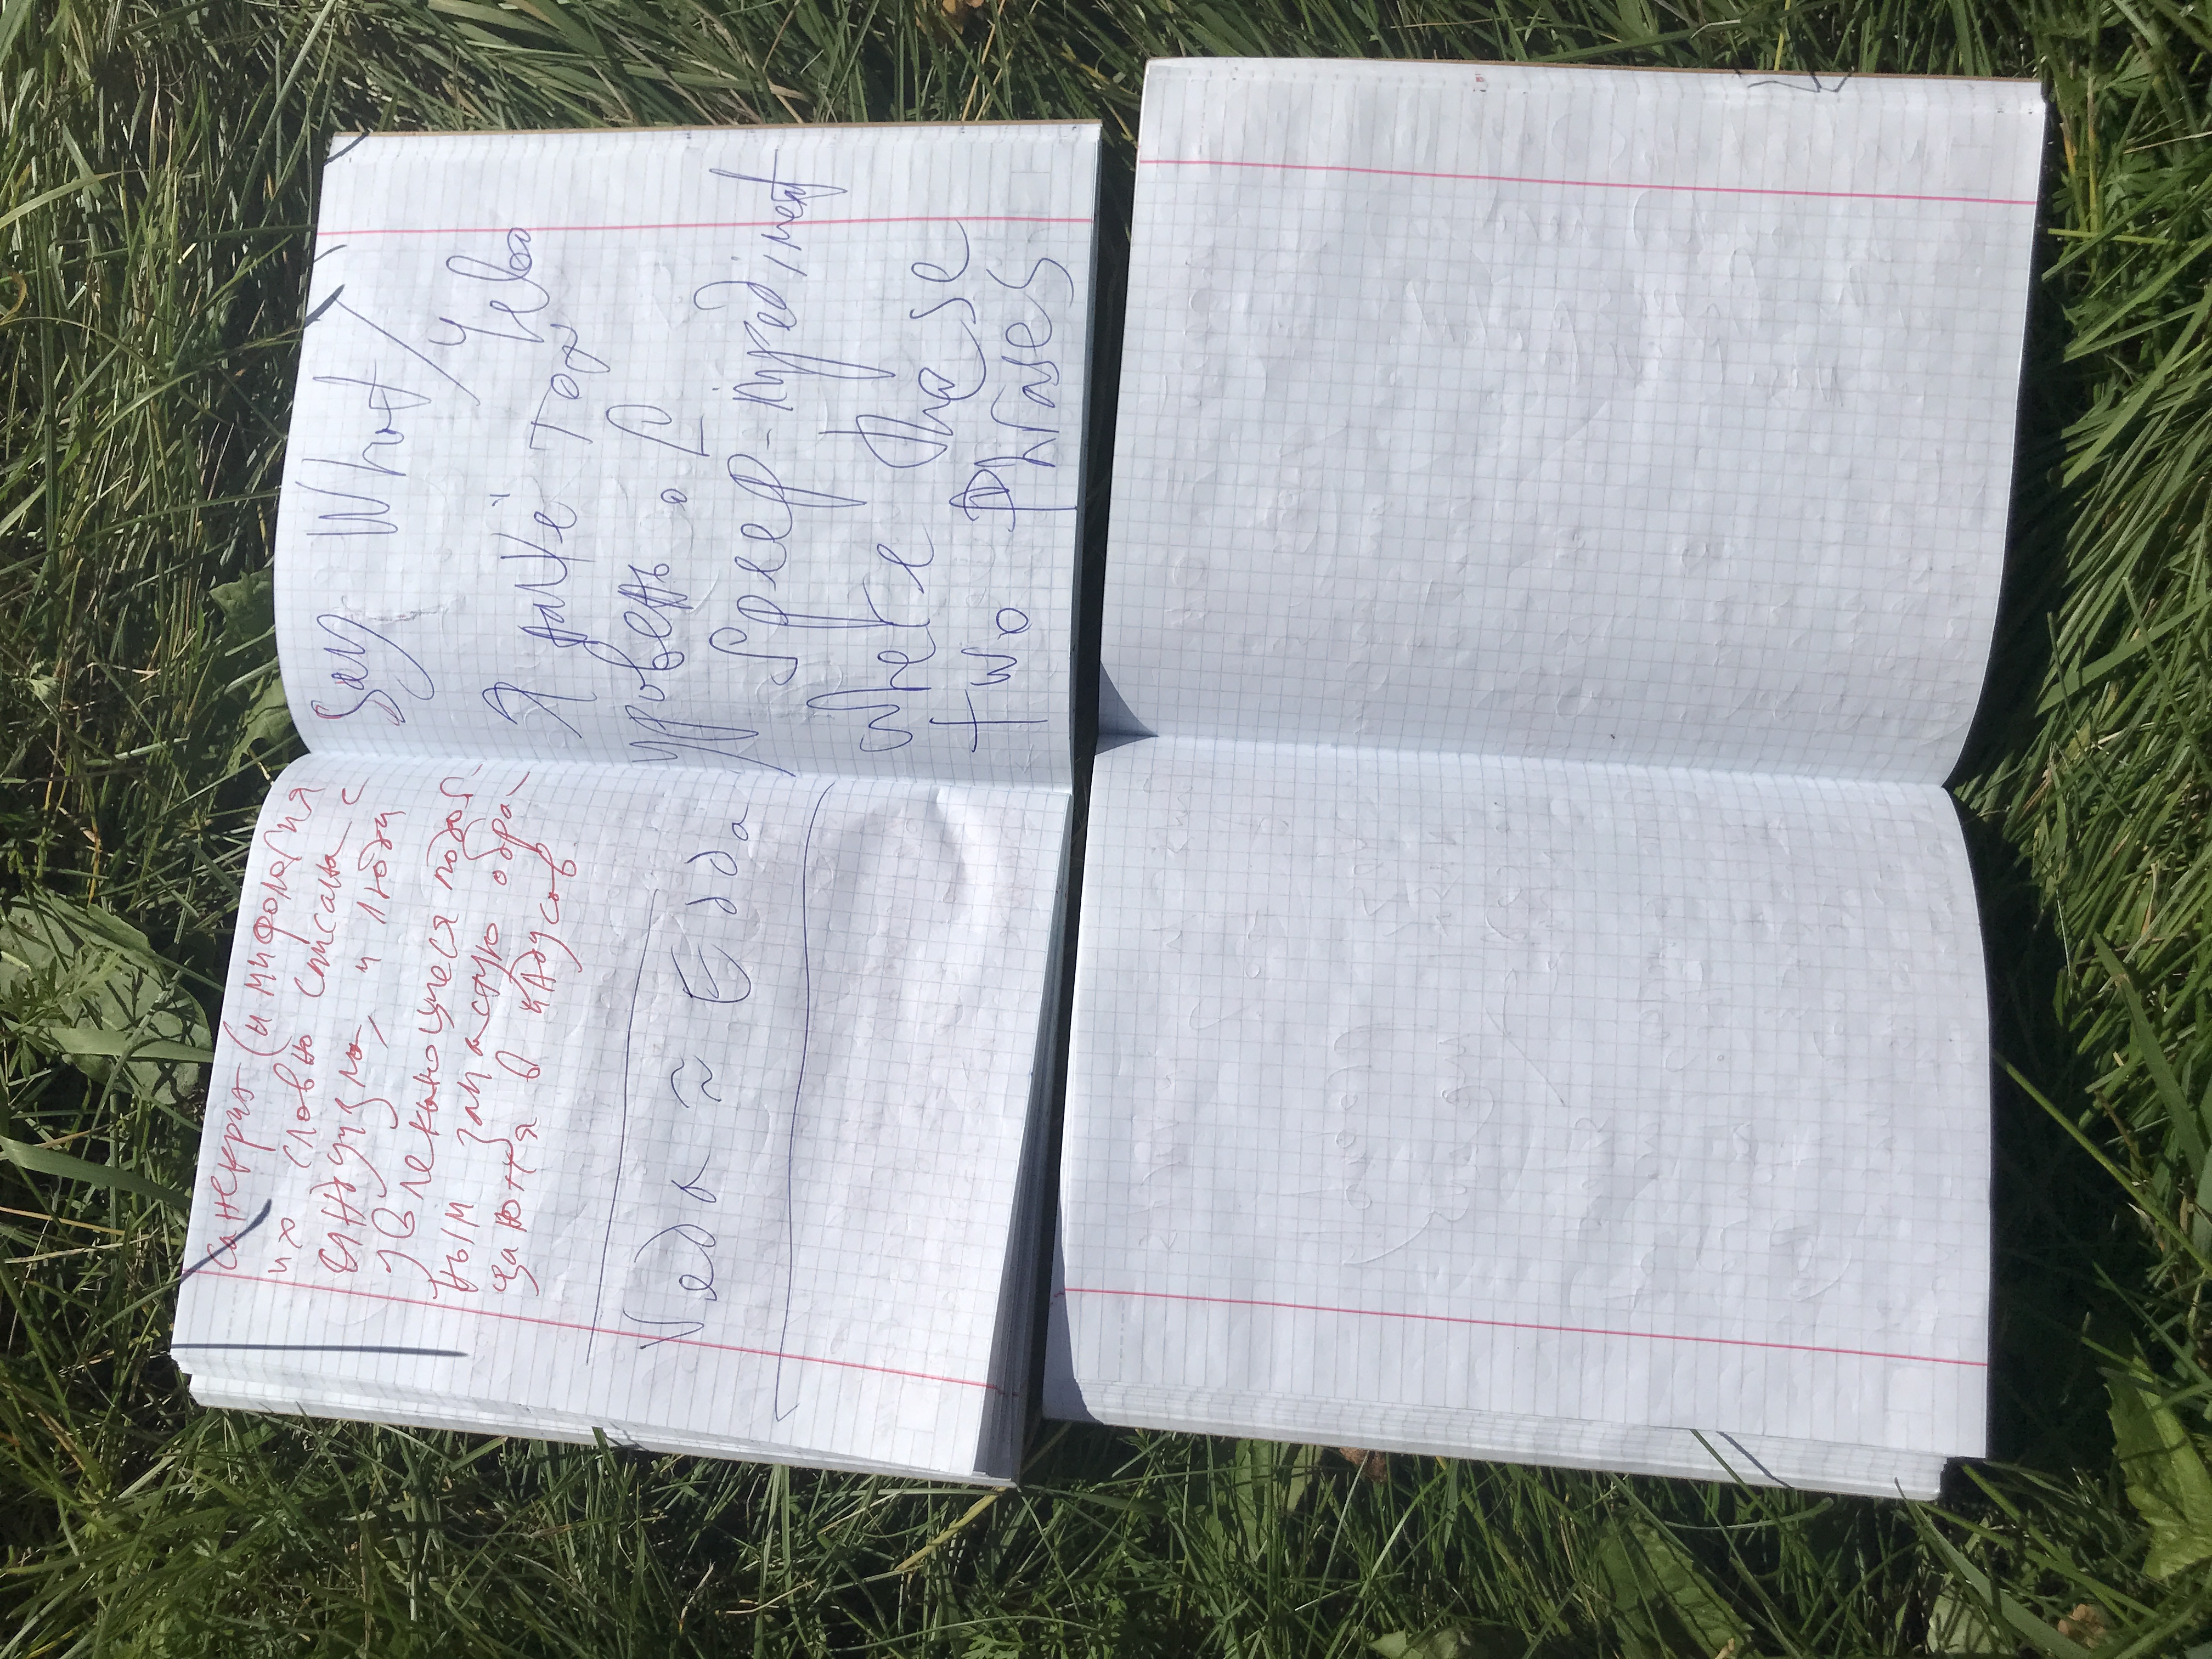 санскрит (и мифология
их словно списана с
индуизма, и люди
увлекающиеся подоб-
ным зачастую обра-
щаются в индусов.
Veda ≈ Edda
Say What /
Чево
Я нашё тот
уровень of
Speep-impediment
where these
two Phrases